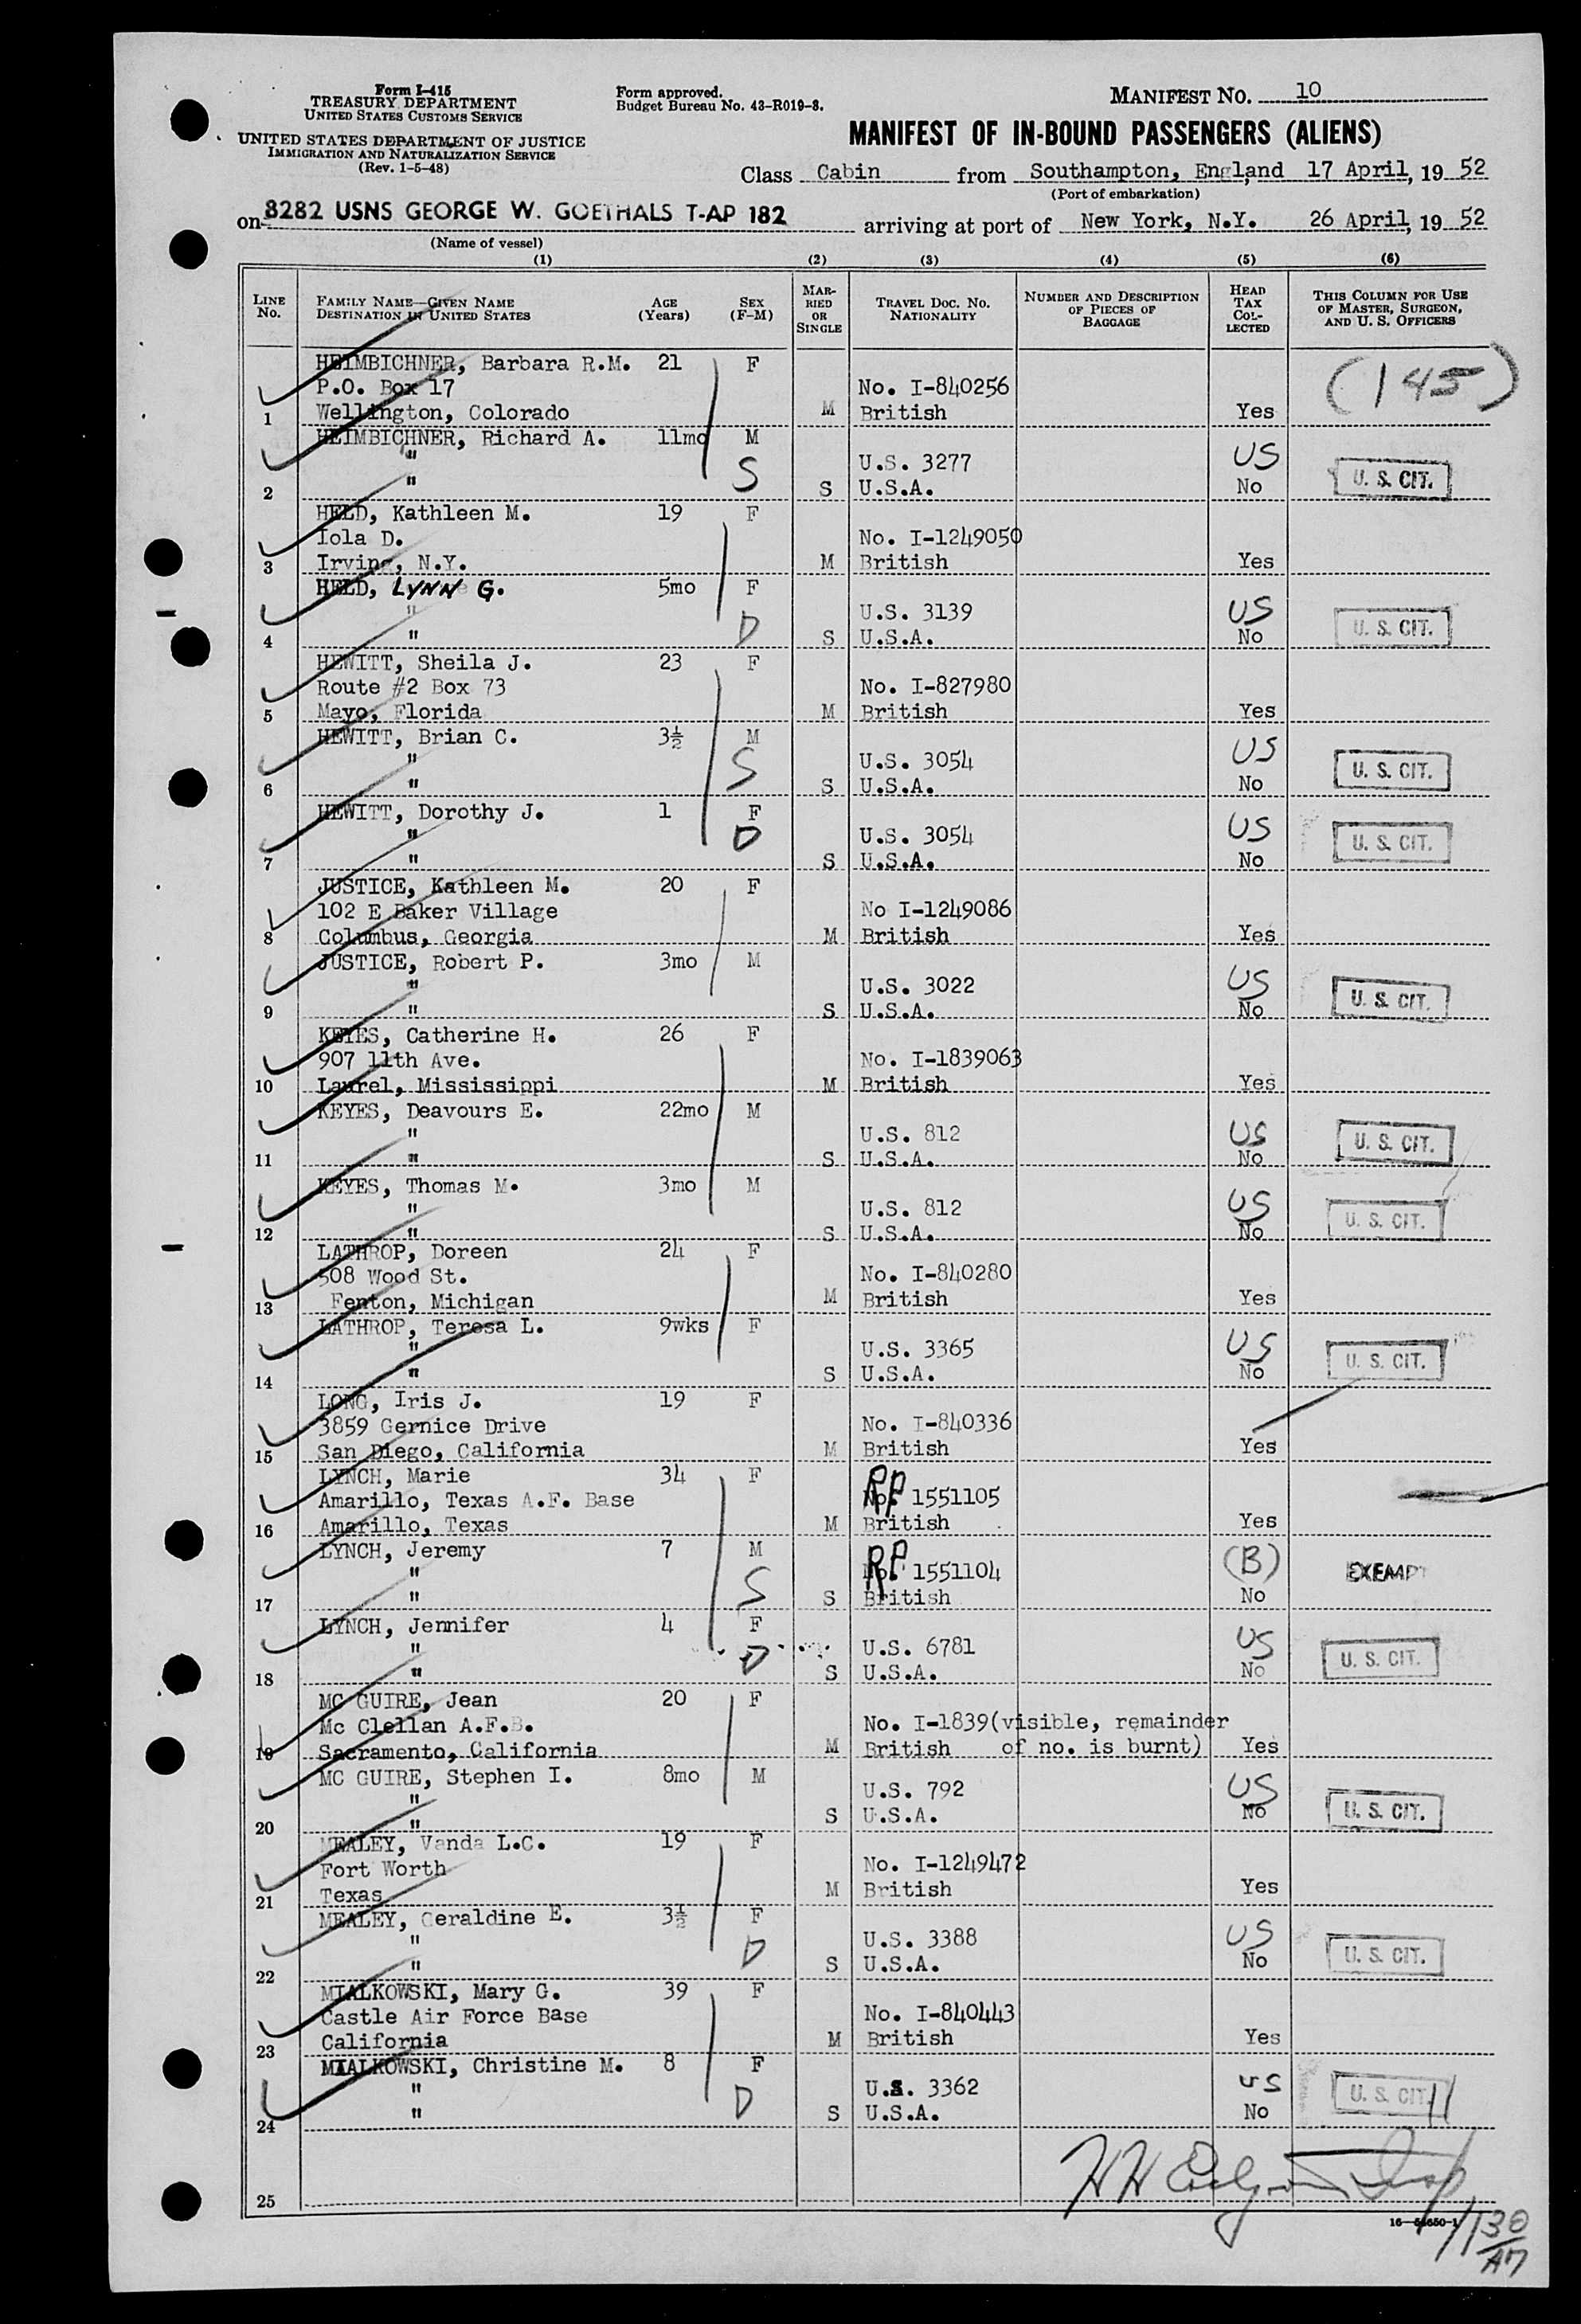 Form I-415
TREASURY DEPARTMENT
UNITED STATES CUSTOMS SERVICE
UNITED STATES DEPARTMENT OF JUSTICE
IMMIGRATION AND NATURALIZATION SERVICE
(Rev. 1-5-48)
Form approved.
Budget Bureau No. 43-R019-3.
MANIFEST NO. 10
MANIFEST OF IN-BOUND PASSENGERS (ALIENS)
Class Cabin from Southampton, England 17 April, 19 52
(Port of embarkation)
on 8282 USNS GEORGE W. GOETHALS T-AP 182 arriving at port of New York, N.Y. 26 April, 19 52
(Name of vessel)
(1) (2) (3) (4) (5) (6)
LINE No. FAMILY NAME—GIVEN NAME DESTINATION IN UNITED STATES AGE (Years) SEX (F-M) MARRIED OR SINGLE TRAVEL DOC. NO. NATIONALITY NUMBER AND DESCRIPTION OF PIECES OF BAGGAGE HEAD TAX COLLECTED THIS COLUMN FOR USE OF MASTER, SURGEON, AND U. S. OFFICERS
HEIMBICHNER, Barbara R.M. 21 F
P.O. Box 17 No. I-840256 (145)
1 Wellington, Colorado M British Yes
HEIMBICHNER, Richard A. 11mo M
" U.S. 3277 US
2 " S S U.S.A. No U. S. CIT.
HELD, Kathleen M. 19 F
Iola D. No. I-1249050
3 Irving, N.Y. M British Yes
HELD, LYNN G. 5mo F
" U.S. 3139 US
4 " D S U.S.A. No U. S. CIT.
HEWITT, Sheila J. 23 F
Route #2 Box 73 No. I-827980
5 Mayo, Florida M British Yes
HEWITT, Brian C. 3½ M
" S U.S. 3054 US
6 " S U.S.A. No U. S. CIT.
HEWITT, Dorothy J. 1 F
" D U.S. 3054 US
7 " S U.S.A. No U. S. CIT.
JUSTICE, Kathleen M. 20 F
102 E Baker Village No I-1249086
8 Columbus, Georgia M British Yes
JUSTICE, Robert P. 3mo M
" U.S. 3022 US
9 " S U.S.A. No U. S. CIT.
KEYES, Catherine H. 26 F
907 11th Ave. No. I-1839063
10 Laurel, Mississippi M British Yes
KEYES, Deavours E. 22mo M
" U.S. 812 US
11 " S U.S.A. No U. S. CIT.
KEYES, Thomas M. 3mo M
" U.S. 812 US
12 " S U.S.A. No U. S. CIT.
LATHROP, Doreen 24 F
508 Wood St. No. I-840280
13 Fenton, Michigan M British Yes
LATHROP, Teresa L. 9wks F
" U.S. 3365 US
14 " S U.S.A. No U. S. CIT.
LONG, Iris J. 19 F
3859 Gernice Drive No. I-840336
15 San Diego, California M British Yes
LYNCH, Marie 34 F
Amarillo, Texas A.F. Base RP No. 1551105
16 Amarillo, Texas M British Yes
LYNCH, Jeremy 7 M
" RP No. 1551104 (B) EXEMPT
17 " S S British No
LYNCH, Jennifer 4 F
" D U.S. 6781 US
18 " S U.S.A. No U. S. CIT.
MC GUIRE, Jean 20 F
Mc Clellan A.F.B. No. I-1839(visible, remainder
19 Sacramento, California M British of no. is burnt) Yes
MC GUIRE, Stephen I. 8mo M
" U.S. 792 US
20 " S U.S.A. No U. S. CIT.
MEALEY, Vanda L.C. 19 F
Fort Worth No. I-1249472
21 Texas M British Yes
MEALEY, Geraldine E. 3½ F
" U.S. 3388 US
22 " D S U.S.A. No U. S. CIT.
MIALKOWSKI, Mary G. 39 F
Castle Air Force Base No. I-840443
23 California M British Yes
MIALKOWSKI, Christine M. 8 F
" U.S. 3362 US
24 " D S U.S.A. No U. S. CIT.
25